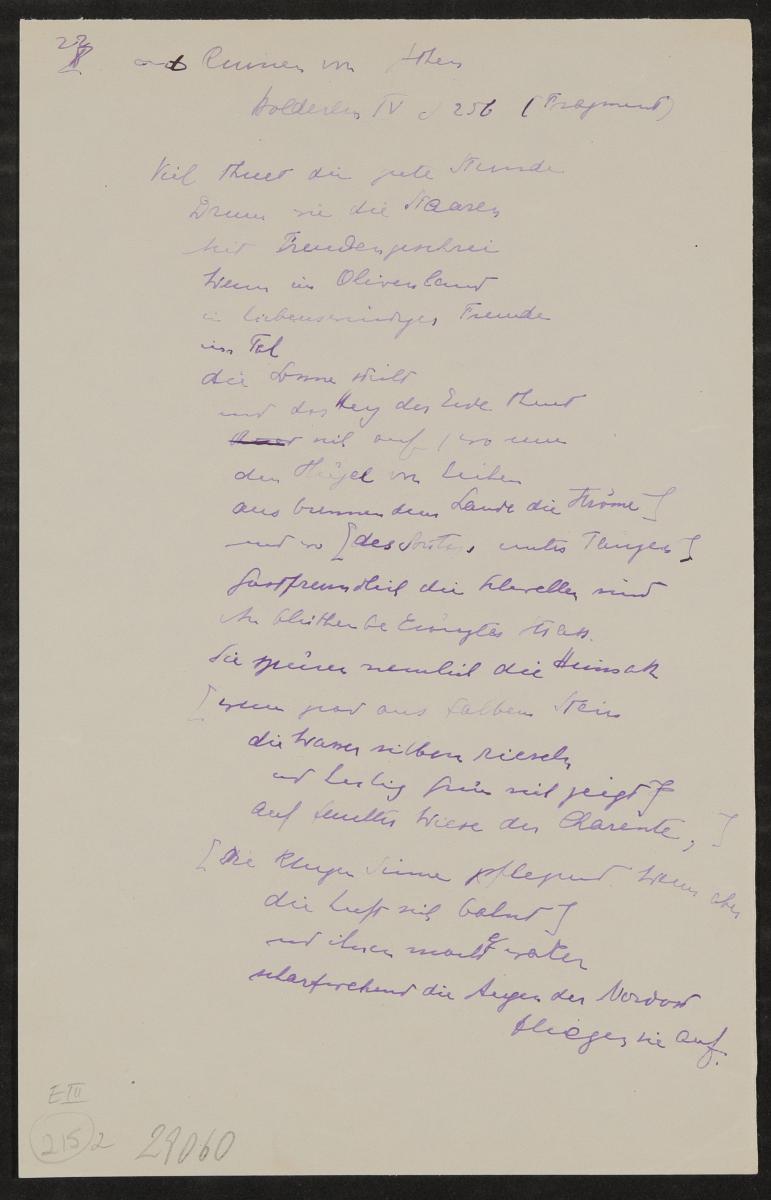 22
und Ruinen von Athen
Hölderlin IV S 256 (Fragment)
Viel thuet die gute Stunde
Drum wie die Staaren
Mit Freudengeschrei
Wenn im Olivenland
in liebenswürdiger Fremde
im Tal
die Sonne sticht
und das Herz der Erde thuet
sich auf / wo um
den Hügel von Eichen
aus brennendem Lande die Ströme]
und wo [des Sonntags unter Tänzen]
Gastfreundlich die Schwellen sind
An blüthenbekränzter Straß.
Sie spüren nemlich die Heimath
[wenn grad aus falbem Stein
die Wasser silbern rieseln
und heilig Grün sich zeigt]
auf feuchter Wiese der Charente,]
[Die klugen Sinne pflegend. Wenn aber
die Luft sich bahnt]
und ihnen macht waker
scharfwehend die Augen der Nordost
Fliegen sie auf.
E III
215 2 29060